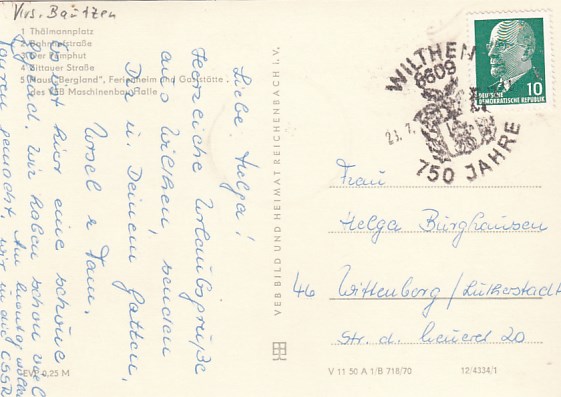 Krs. Bautzen
1 Thälmannplatz
2 Bahnhofstraße
3 Der Pumphut
4 Zittauer Straße
5 Haus "Bergland", Ferienheim und Gaststätte
des VEB Maschinenbau Halle
Liebe Helga!
Herzliche Urlaubsgrüße
aus Wilthen, senden
Dir u. Deinem Gatten,
Ursel & Fam.
Es ist hier eine schöne
Gegend. Wir haben schon viel
Touren gemacht. Am wollen
wir in die CSSR
VEB BILD UND HEIMAT REICHENBACH i. V.
EVP 0,25 M
WILTHEN
8609
23. 7.
750 JAHRE
10
DEUTSCHE
DEMOKRATISCHE REPUBLIK
Frau
Helga Burghausen
46 Wittenberg / Lutherstadt
Str. d. 20
V 11 50 A 1/B 718/70 12/4334/1